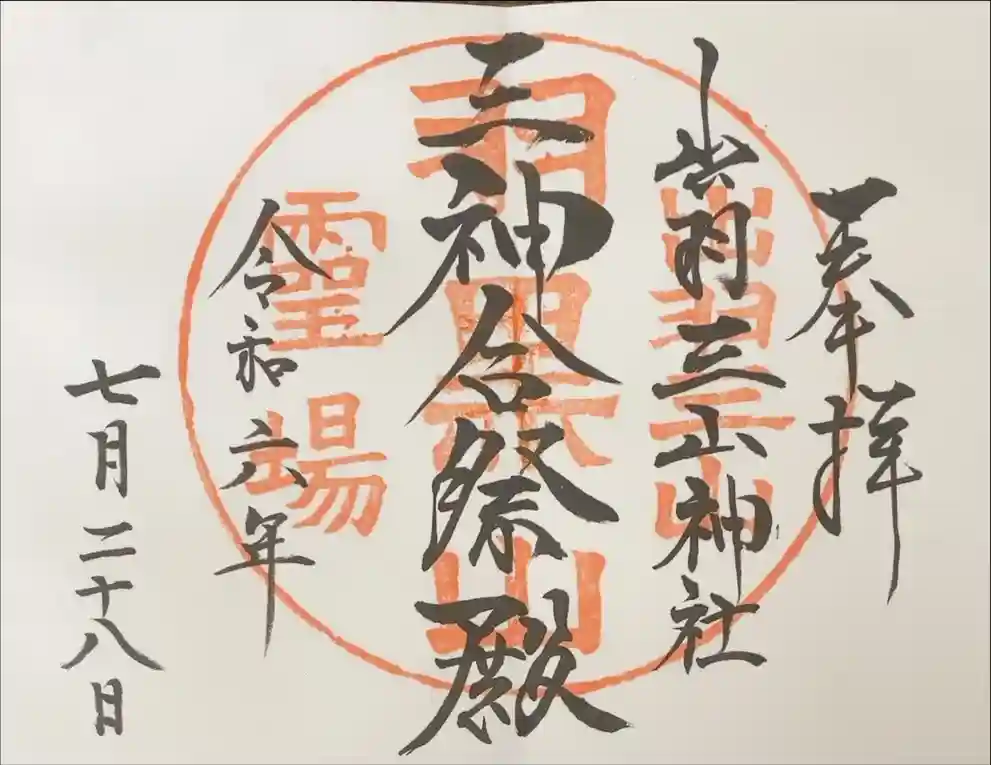 奉拝
出羽三山神社
三神合祭殿
令和六年
七月二十八日
出羽三山
羽黒山
霊場